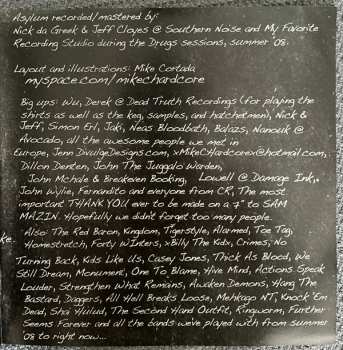 Asylum recorded/mastered by:
Nick da Greek & Jeff Cloyes @ Southern Noise and My Favorite
Recording Studio during the Drugs sessions, summer '08.
Layout and illustrations: Mike Cortada
myspace.com/mikechardcore
Big ups: Wu, Derek @ Dead Truth Recordings (for playing the
shirts as well as the keg, samples, and hatchetmen), Nick &
Jeff, Simon Erl, Jaki, Neas Bloodbath, Balazs, Nanouk @
Avocado, all the awesome people we met in
Europe, Jenn DivulgeDesigns.com, xMikeCHardcorex@hotmail.com,
Dillon Denten, John The Juggalo Warden,
John Mchale & Breakeven Booking, Lowell @ Damage Ink,
John Wylie, Fernandito and everyone from CR, The most
important THANK YOU ever to be made on a 7" to SAM
MAZIN. Hopefully we didn't forget too many people.
ke. Also: The Red Baron, Kingdom, Tigerstyle, Alarmed, Toe Tag,
Homestretch, Forty Winters, xBilly The Kidx, Crimes, No
Turning Back, Kids Like Us, Casey Jones, Thick As Blood, We
Still Dream, Monument, One To Blame, Hive Mind, Actions Speak
Louder, Strengthen What Remains, Awaken Demons, Hang The
Bastard, Daggers, All Hell Breaks Loose, Mehkago NT, Knock 'Em
Dead, Shai Hulud, The Second Hand Outfit, Ringworm, Further
Seems Forever and all the bands we've played with from summer
'08 to right now...